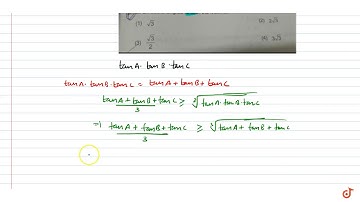 (1) √3
(3) √3/2
tanA · tanB · tanC
tanA · tanB · tanC = tanA + tanB + tanC
(tanA + tanB + tanC)/3 ≥ ∛(tanA · tanB · tanC)
⇒ (tanA + tanB + tanC)/3 ≥ ∛(tanA + tanB + tanC)